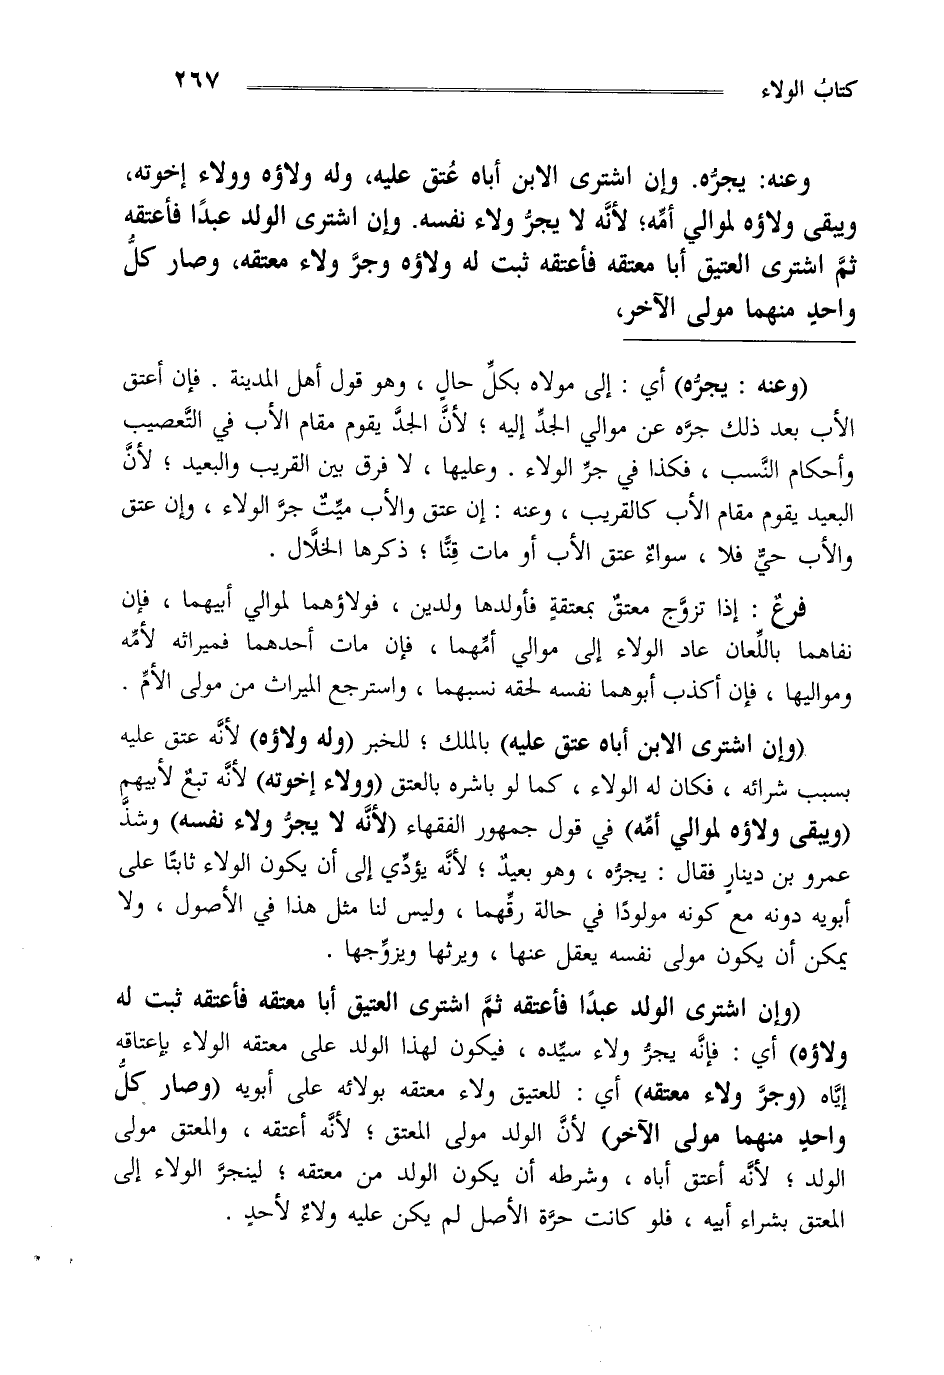 كتابُ الولاء ٢٦٧
وعنه: يجرُّه. وإن اشترى الابن أباه عُتق عليه، وله ولاؤه وولاء إخوته،
ويبقى ولاؤه لموالي أمِّه؛ لأنَّه لا يجرُّ ولاء نفسه. وإن اشترى الولد عبدًا فأعتقه
ثمَّ اشترى العتيق أبا معتقه فأعتقه ثبت له ولاؤه وجرَّ ولاء معتقه، وصار كلُّ
واحدٍ منهما مولى الآخر،
(وعنه : يجرُّه) أي : إلى مولاه بكلِّ حالٍ ، وهو قول أهل المدينة . فإن أعتق
الأب بعد ذلك جرَّه عن موالي الجدِّ إليه ؛ لأنَّ الجدَّ يقوم مقام الأب في التَّعصيب
وأحكام النَّسب ، فكذا في جرِّ الولاء . وعليها ، لا فرق بين القريب والبعيد ؛ لأنَّ
البعيد يقوم مقام الأب كالقريب ، وعنه : إن عتق والأب ميِّتٌ جرَّ الولاء ، وإن عتق
والأب حيٌّ فلا ، سواءٌ عتق الأب أو مات قِنًّا ؛ ذكرها الخلَّال .
فرعٌ : إذا تزوَّج معتقٌ بمعتقةٍ فأولدها ولدين ، فولاؤهما لموالي أبيهما ، فإن
نفاهما باللِّعان عاد الولاء إلى موالي أمِّهما ، فإن مات أحدهما فميراثه لأمِّه
ومواليها ، فإن أكذب أبوهما نفسه لحقه نسبهما ، واسترجع الميراث من مولى الأمِّ .
(وإن اشترى الابن أباه عتق عليه) بالملك ؛ للخبر (وله ولاؤه) لأنَّه عتق عليه
بسبب شرائه ، فكان له الولاء ، كما لو باشره بالعتق (وولاء إخوته) لأنَّه تبعٌ لأبيهم
(ويبقى ولاؤه لموالي أمِّه) في قول جمهور الفقهاء (لأنَّه لا يجرُّ ولاء نفسه) وشذَّ
عمرو بن دينارٍ فقال : يجرُّه ، وهو بعيدٌ ؛ لأنَّه يؤدِّي إلى أن يكون الولاء ثابتًا على
أبويه دونه مع كونه مولودًا في حالة رقِّهما ، وليس لنا مثل هذا في الأصول ، ولا
يمكن أن يكون مولى نفسه يعقل عنها ، ويرثها ويزوِّجها .
(وإن اشترى الولد عبدًا فأعتقه ثمَّ اشترى العتيق أبا معتقه فأعتقه ثبت له
ولاؤه) أي : فإنَّه يجرُّ ولاء سيِّده ، فيكون لهذا الولد على معتقه الولاء بإعتاقه
إيَّاه (وجرَّ ولاء معتقه) أي : للعتيق ولاء معتقه بولائه على أبويه (وصار كلُّ
واحدٍ منهما مولى الآخر) لأنَّ الولد مولى المعتق ؛ لأنَّه أعتقه ، والمعتق مولى
الولد ؛ لأنَّه أعتق أباه ، وشرطه أن يكون الولد من معتقه ؛ لينجرَّ الولاء إلى
المعتق بشراء أبيه ، فلو كانت حرَّة الأصل لم يكن عليه ولاءٌ لأحدٍ .